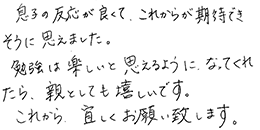 息子の反応が良くて、これからが期待でき
そうに思えました。
勉強は楽しいと思えるように、なってくれ
たら、親としても嬉しいです。
これから、宜しくお願い致します。